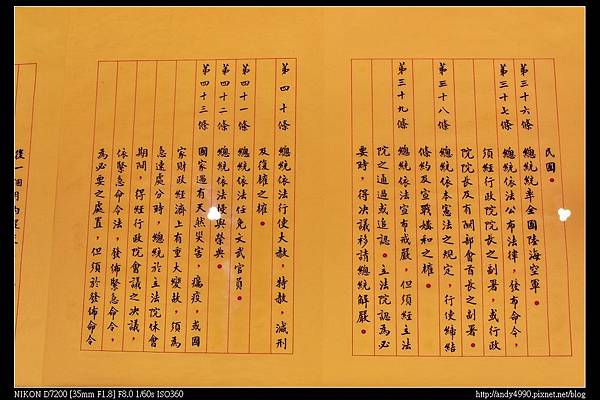 民國。
第三十六條 總統統率全國陸海空軍。
第三十七條 總統依法公布法律，發布命令，
須經行政院院長之副署，或行政
院院長及有關部會首長之副署。
第三十八條 總統依本憲法之規定，行使締結
條約及宣戰媾和之權。
第三十九條 總統依法宣布戒嚴，但須經立法
院之通過或追認。立法院認為必
要時，得決議移請總統解嚴。
第四十條 總統依法行使大赦，特赦，減刑
及復權之權。
第四十一條 總統依法任免文武官員。
第四十二條 總統依法授與榮典。
第四十三條 國家遇有天然災害，癘疫，或國
家財政經濟上有重大變故，須為
急速處分時，總統於立法院休會
期間，得經行政院會議之決議，
依緊急命令法，發佈緊急命令，
為必要之處置，但須於發佈命令
後一個月內
NIKON D7200 [35mm F1.8] F8.0 1/60s ISO360
http://andy4990.pixnet.net/blog